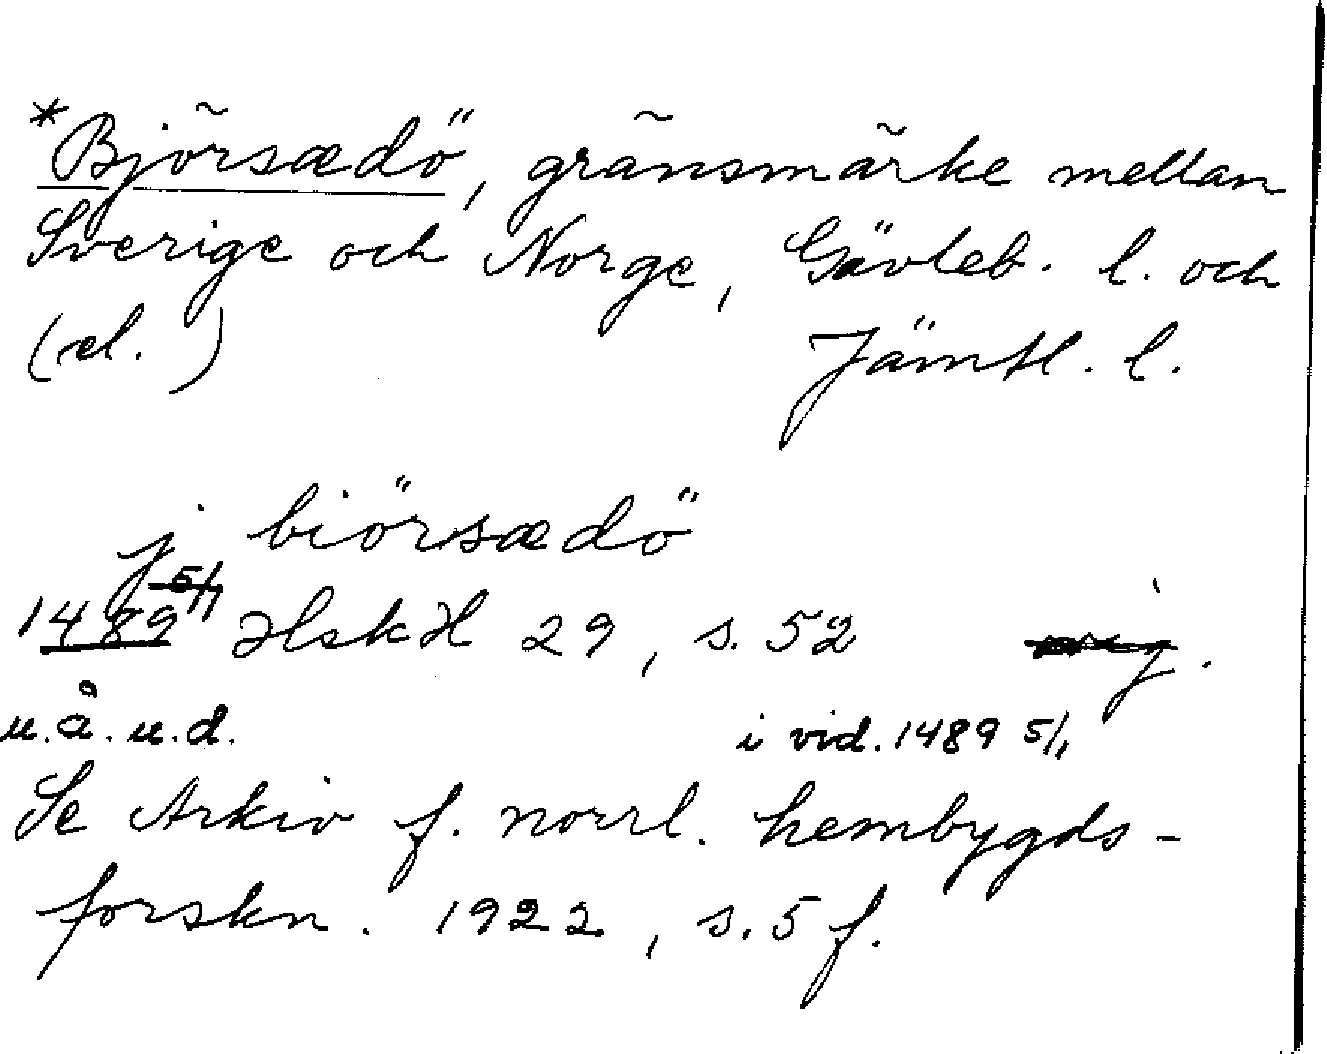 *Björsædö, gränsmärke mellan
Sverige och Norge, Gävleb. l. och
(æl. ) Jämtl. l.
j biörsædö
1489 5/1 HskH 29, s. 52
u.å. u.d. i vid. 1489 5/1
Se Arkiv f. norrl. hembygds-
forskn. 1922, s. 5 f.